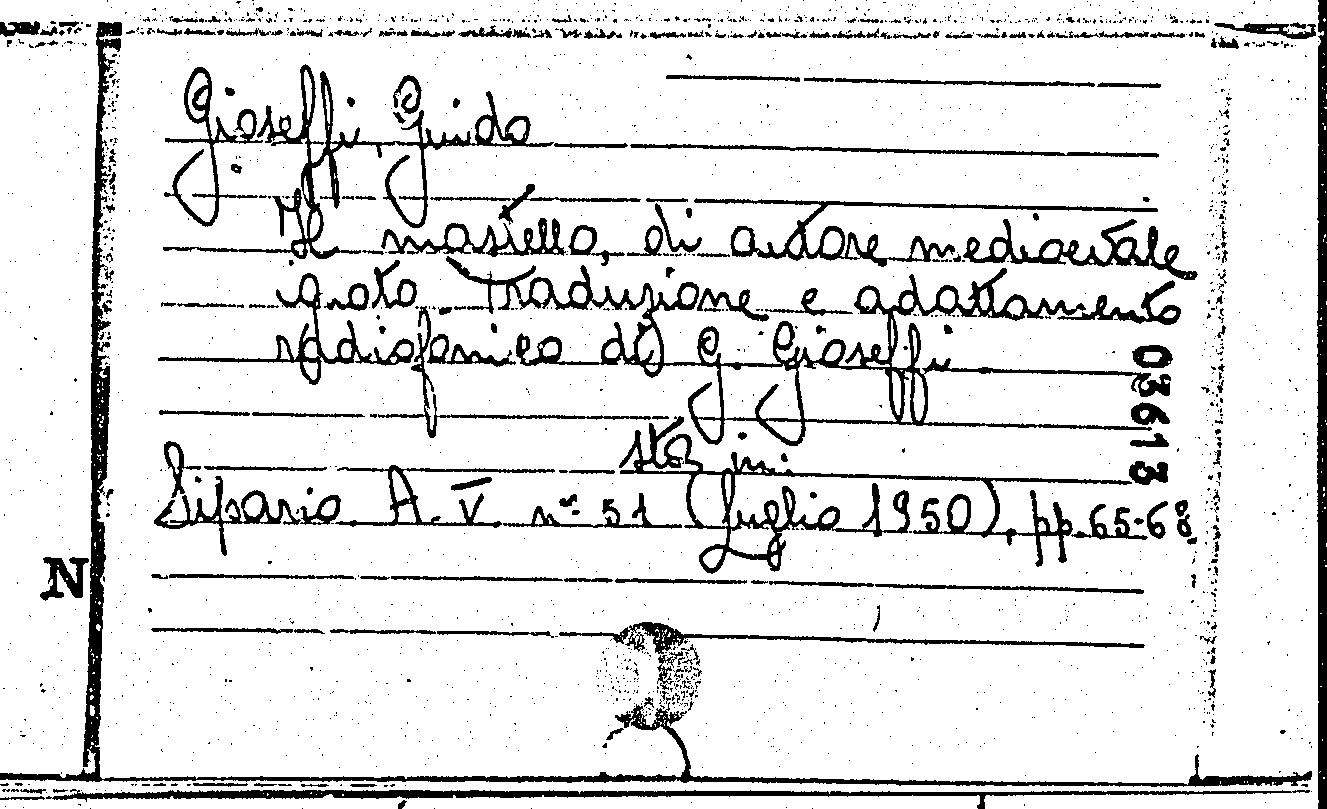 Gioseffi, Guido
Il mastello, di autore medioevale
ignoto. Traduzione e adattamento
radiofonico di G. Gioseffi.
03613
Sipario. A. V. nº 51 (luglio 1950), pp. 65-68
N